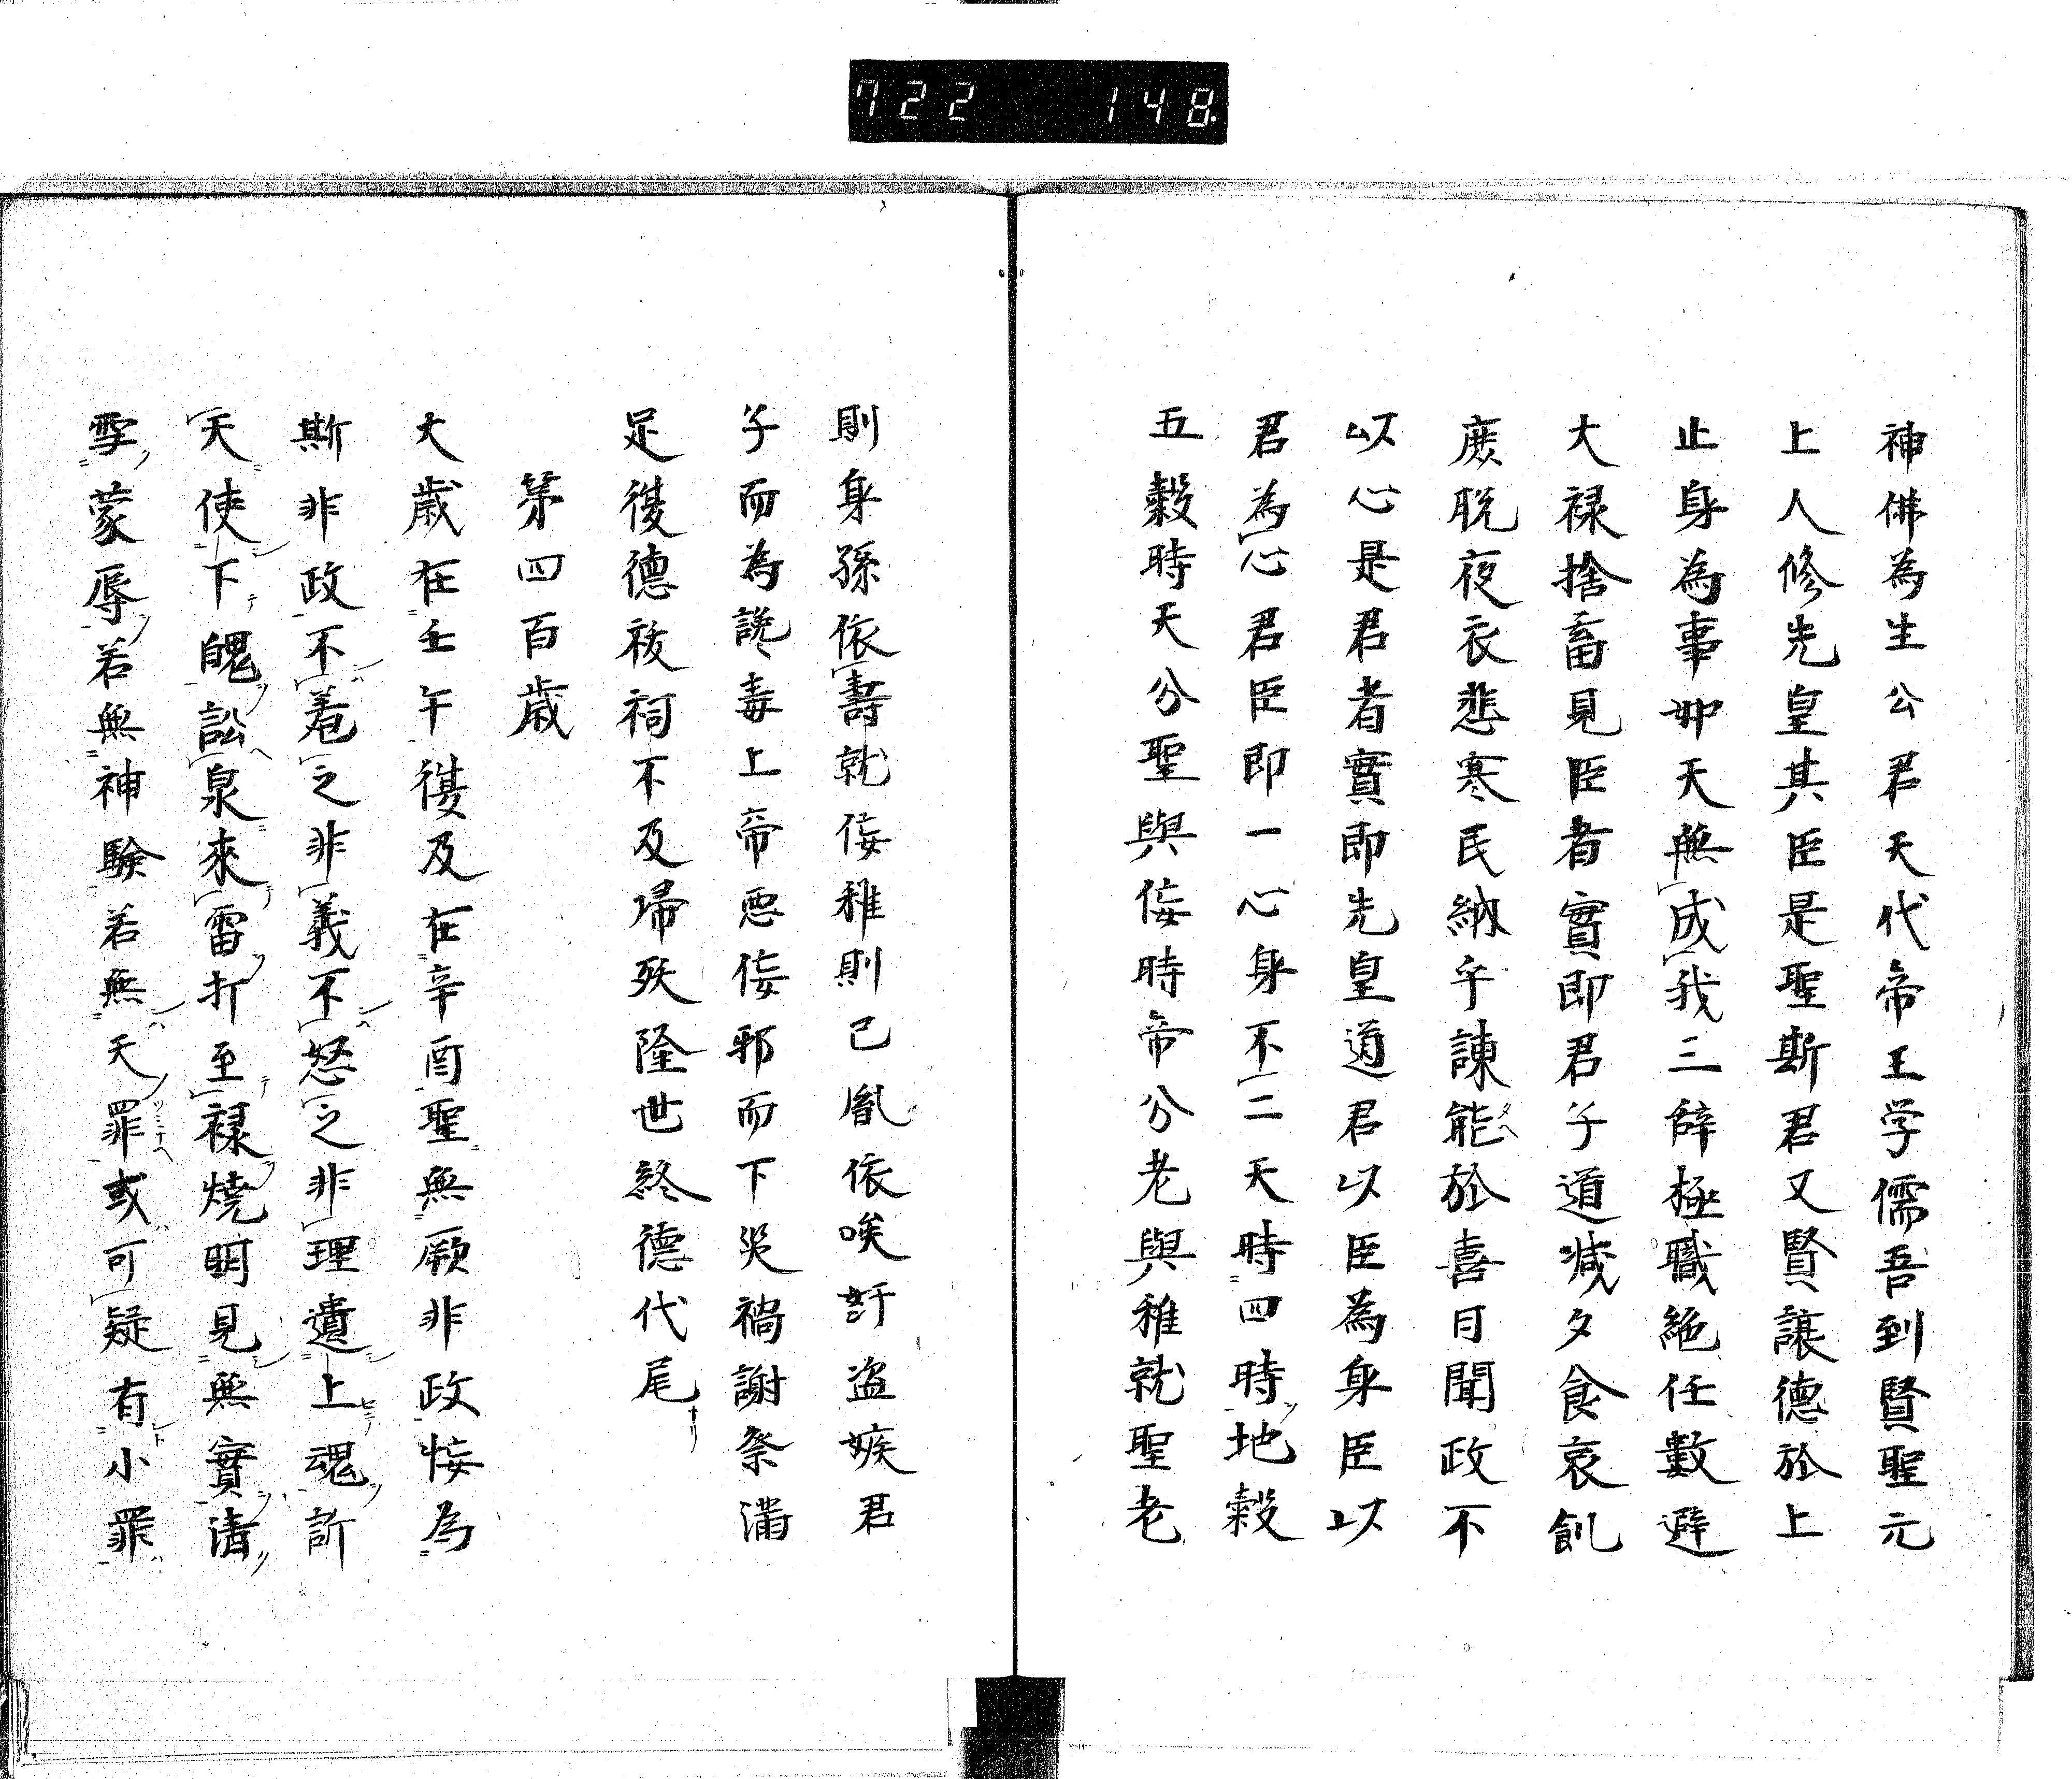 722 148
神佛為生公君天代帝王学儒吾到賢聖元
上人修先皇其臣是聖斯君又賢讓德於上
止身為事如天無成我三辞極職絶任數避
大禄捨畜見臣者實即君子道減夕食哀飢
庶脱夜衣悲寒民納乎諫能於喜日聞政不
以心是君者實即先皇道君以臣為身臣以
君為心君臣即一心身不二天時四時地穀
五穀時天分聖與侫時帝分老與稚就聖老
則身孫依壽就侫稚則己胤依唉訐盗嫉君
子而為讒毒上帝悪侫邪而下災禍謝祭満
足復德祓祠不及帰殃隆世終德代尾ナリ
第四百歳
大歳在壬午復及在辛酉聖無厥非政侫為
斯非政不羞之非義不怒之非理遺上魂訴
天使下醜訟泉來雷打至禄焼明見無實清
雪蒙辱若無神験若無天罪或可疑有小罪